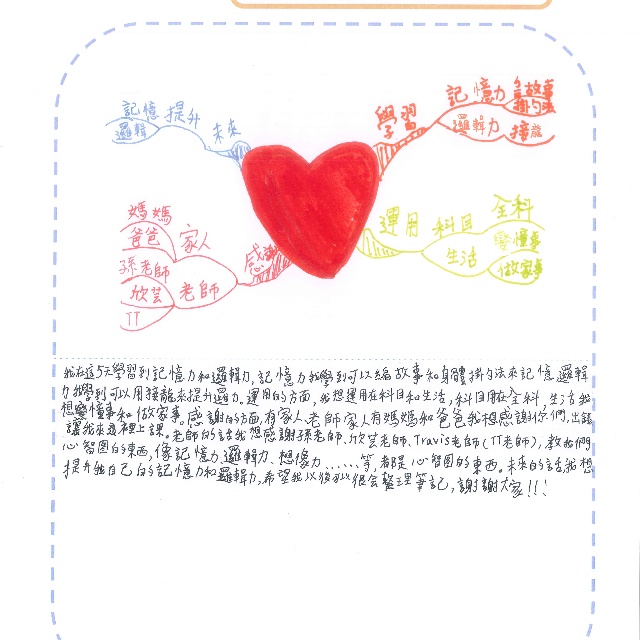 記憶 提升 未來
邏輯
學習 記憶力 編故事
掛勾法
邏輯力 接龍
媽媽
爸爸 家人
孫老師
欣芸 老師
TT
感謝
運用 科目 全科
生活 變懂事
做家事
我在這5天學習到記憶力和邏輯力,記憶力我學到可以編故事和身體掛勾法來記憶,邏輯
力我學到可以用接龍來提升邏力。運用的方面,我想運用在科目和生活,科目用在全科,生活我
想變懂事和做家事。感謝的方面,有家人、老師家人有媽媽和爸爸我想感謝你們,出錢
讓我來這裡上課。老師的話我想感謝孫老師、欣芸老師、Travis老師(TT老師),教我們
心智圖的東西,像記憶力、邏輯力、想像力……等,都是心智圖的東西。未來的話我想
提升我自己的記憶力和邏輯力,希望我以後可以很會整理筆記,謝謝大家!!!